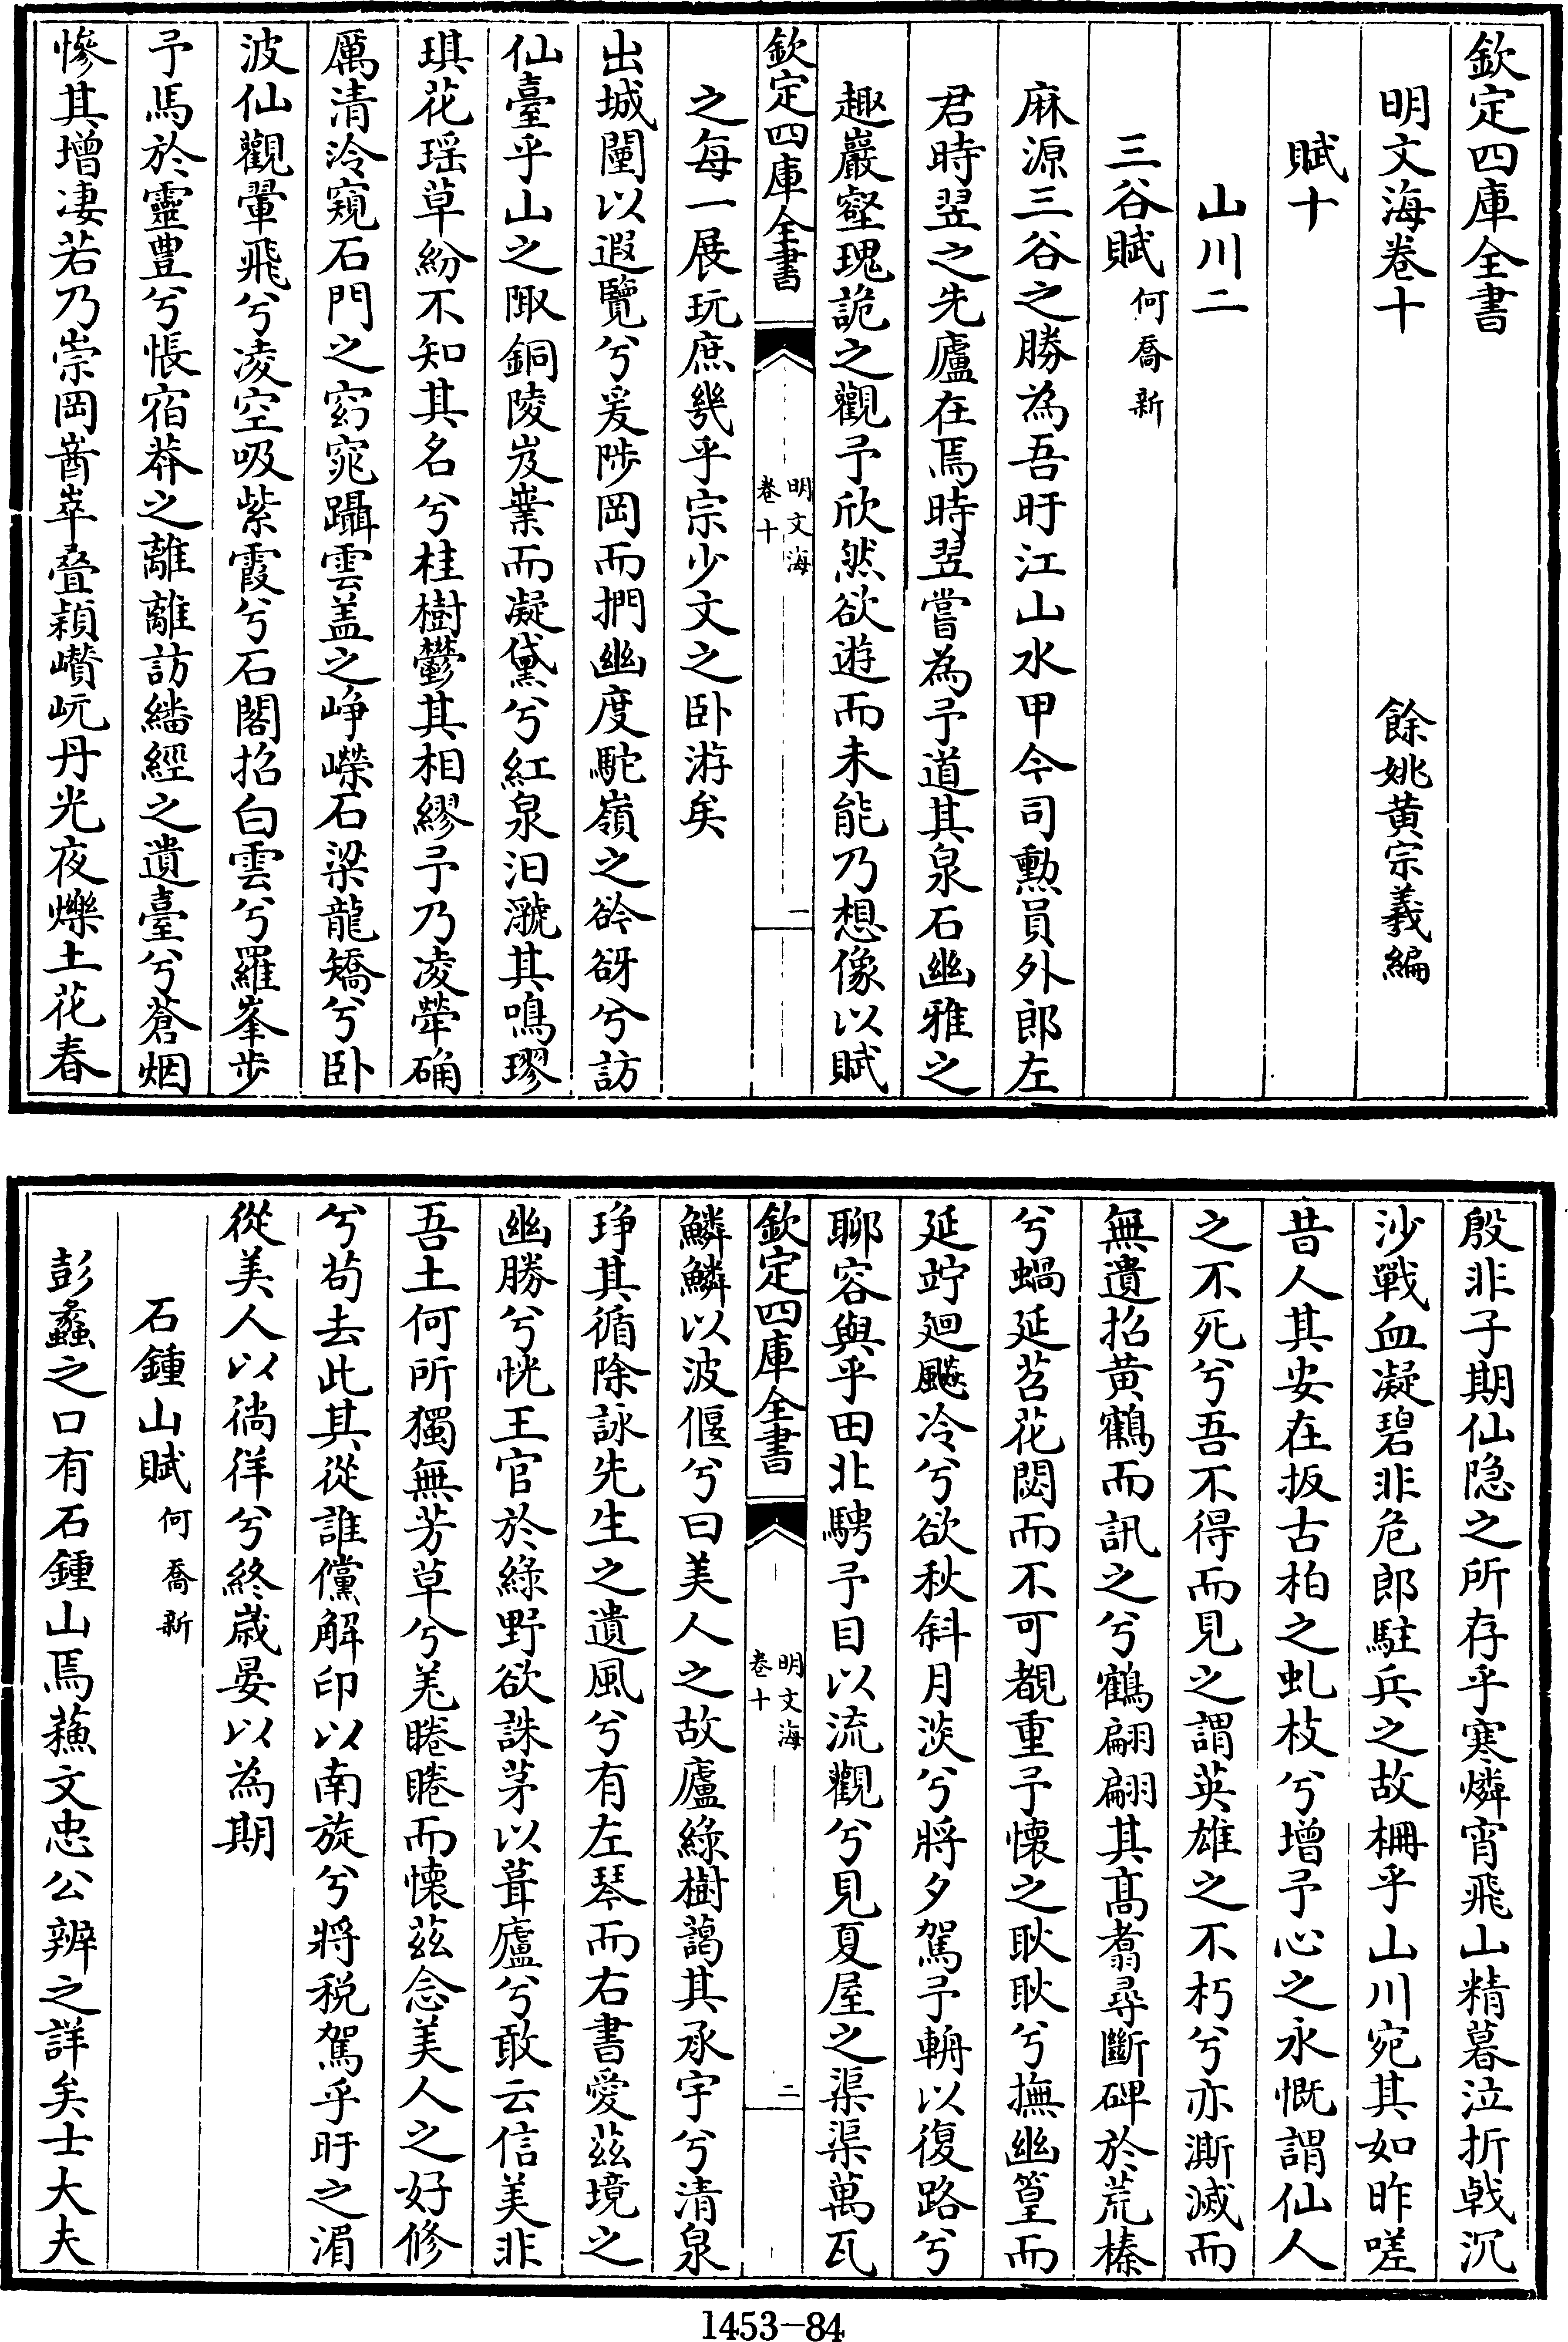 欽定四庫全書
明文海卷十
餘姚黄宗羲編
賦十
山川二
三谷賦何喬新
麻源三谷之勝為吾盱江山水甲今司勲員外郎左
君時翌之先廬在焉時翌嘗為予道其泉石幽雅之
趣巖壑瑰詭之觀予欣然欲遊而未能乃想像以賦
之每一展玩庶幾乎宗少文之卧游矣
欽定四庫全書
明文海
卷十
一
出城闉以遐覽兮爰陟岡而捫幽度駝嶺之谽谺兮訪
仙臺乎山之陬銅陵岌嶪而凝黛兮紅泉汩㶁其鳴璆
琪花瑶草紛不知其名兮桂樹鬱其相繆予乃凌犖确
厲清泠窺石門之窈窕躡雲盖之崢嶸石梁龍矯兮卧
波仙觀翬飛兮凌空吸紫霞兮石閣招白雲兮羅峯步
予馬於靈豊兮悵宿莽之離離訪繙經之遺臺兮蒼烟
慘其增凄若乃崇岡崷崒叠穎巑岏丹光夜爍土花春
殷非子期仙隐之所存乎寒燐宵飛山精暮泣折戟沉
沙戰血凝碧非危郎駐兵之故栅乎山川宛其如昨嗟
昔人其安在扳古柏之虬枝兮增予心之永慨謂仙人
之不死兮吾不得而見之謂英雄之不朽兮亦澌滅而
無遺招黄鶴而訊之兮鶴翩翩其髙翥尋斷碑於荒榛
兮蝸延苔花閟而不可覩重予懷之耿耿兮撫幽篁而
延竚廻飇冷兮欲秋斜月淡兮將夕駕予輈以復路兮
聊容與乎田北騁予目以流觀兮見夏屋之渠渠萬瓦
欽定四庫全書
明文海
卷十
二
鱗鱗以波偃兮曰美人之故廬綠樹藹其承宇兮清泉
琤其循除詠先生之遺風兮有左琴而右書愛兹境之
幽勝兮恍王官於綠野欲誅茅以葺廬兮敢云信美非
吾土何所獨無芳草兮羌睠睠而懷兹念美人之好修
兮茍去此其從誰儻解印以南旋兮將税駕乎盱之湄
從美人以徜徉兮終歳晏以為期
石鍾山賦何喬新
彭蠡之口有石鍾山焉蘓文忠公辨之詳矣士大夫
1453-84